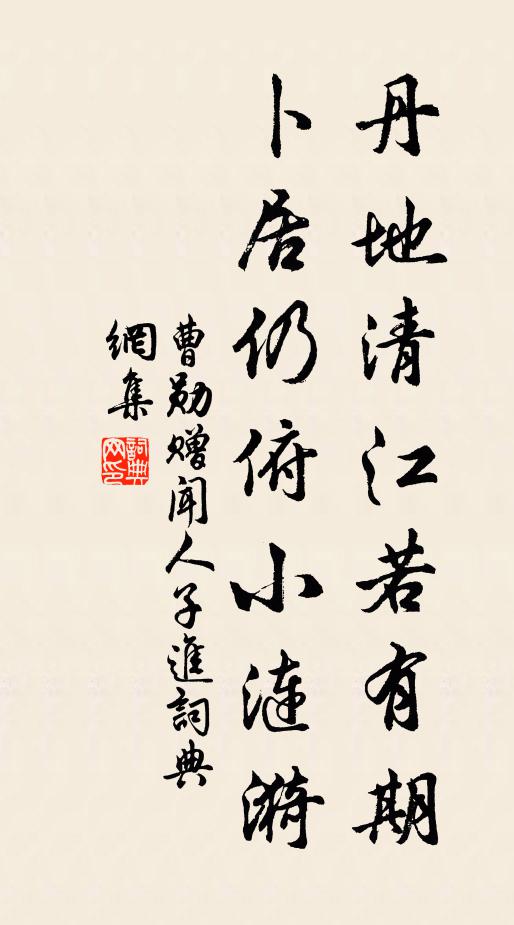 丹地清江若有期
卜居仍俯小漣漪
曹勛贈聞人子進詞典
網集
詞典網印